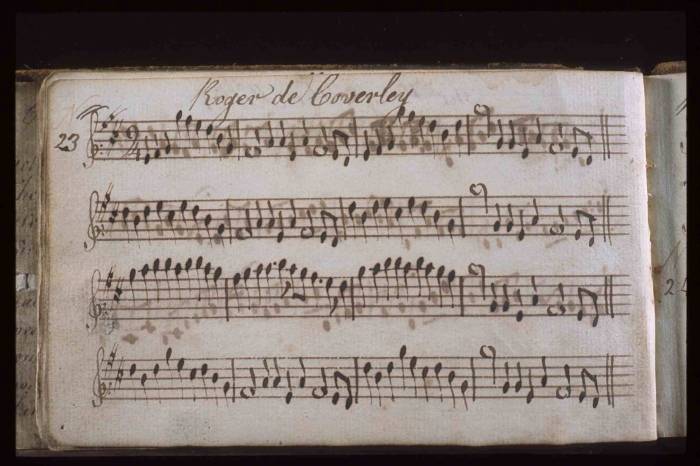 Roger de Coverley
23